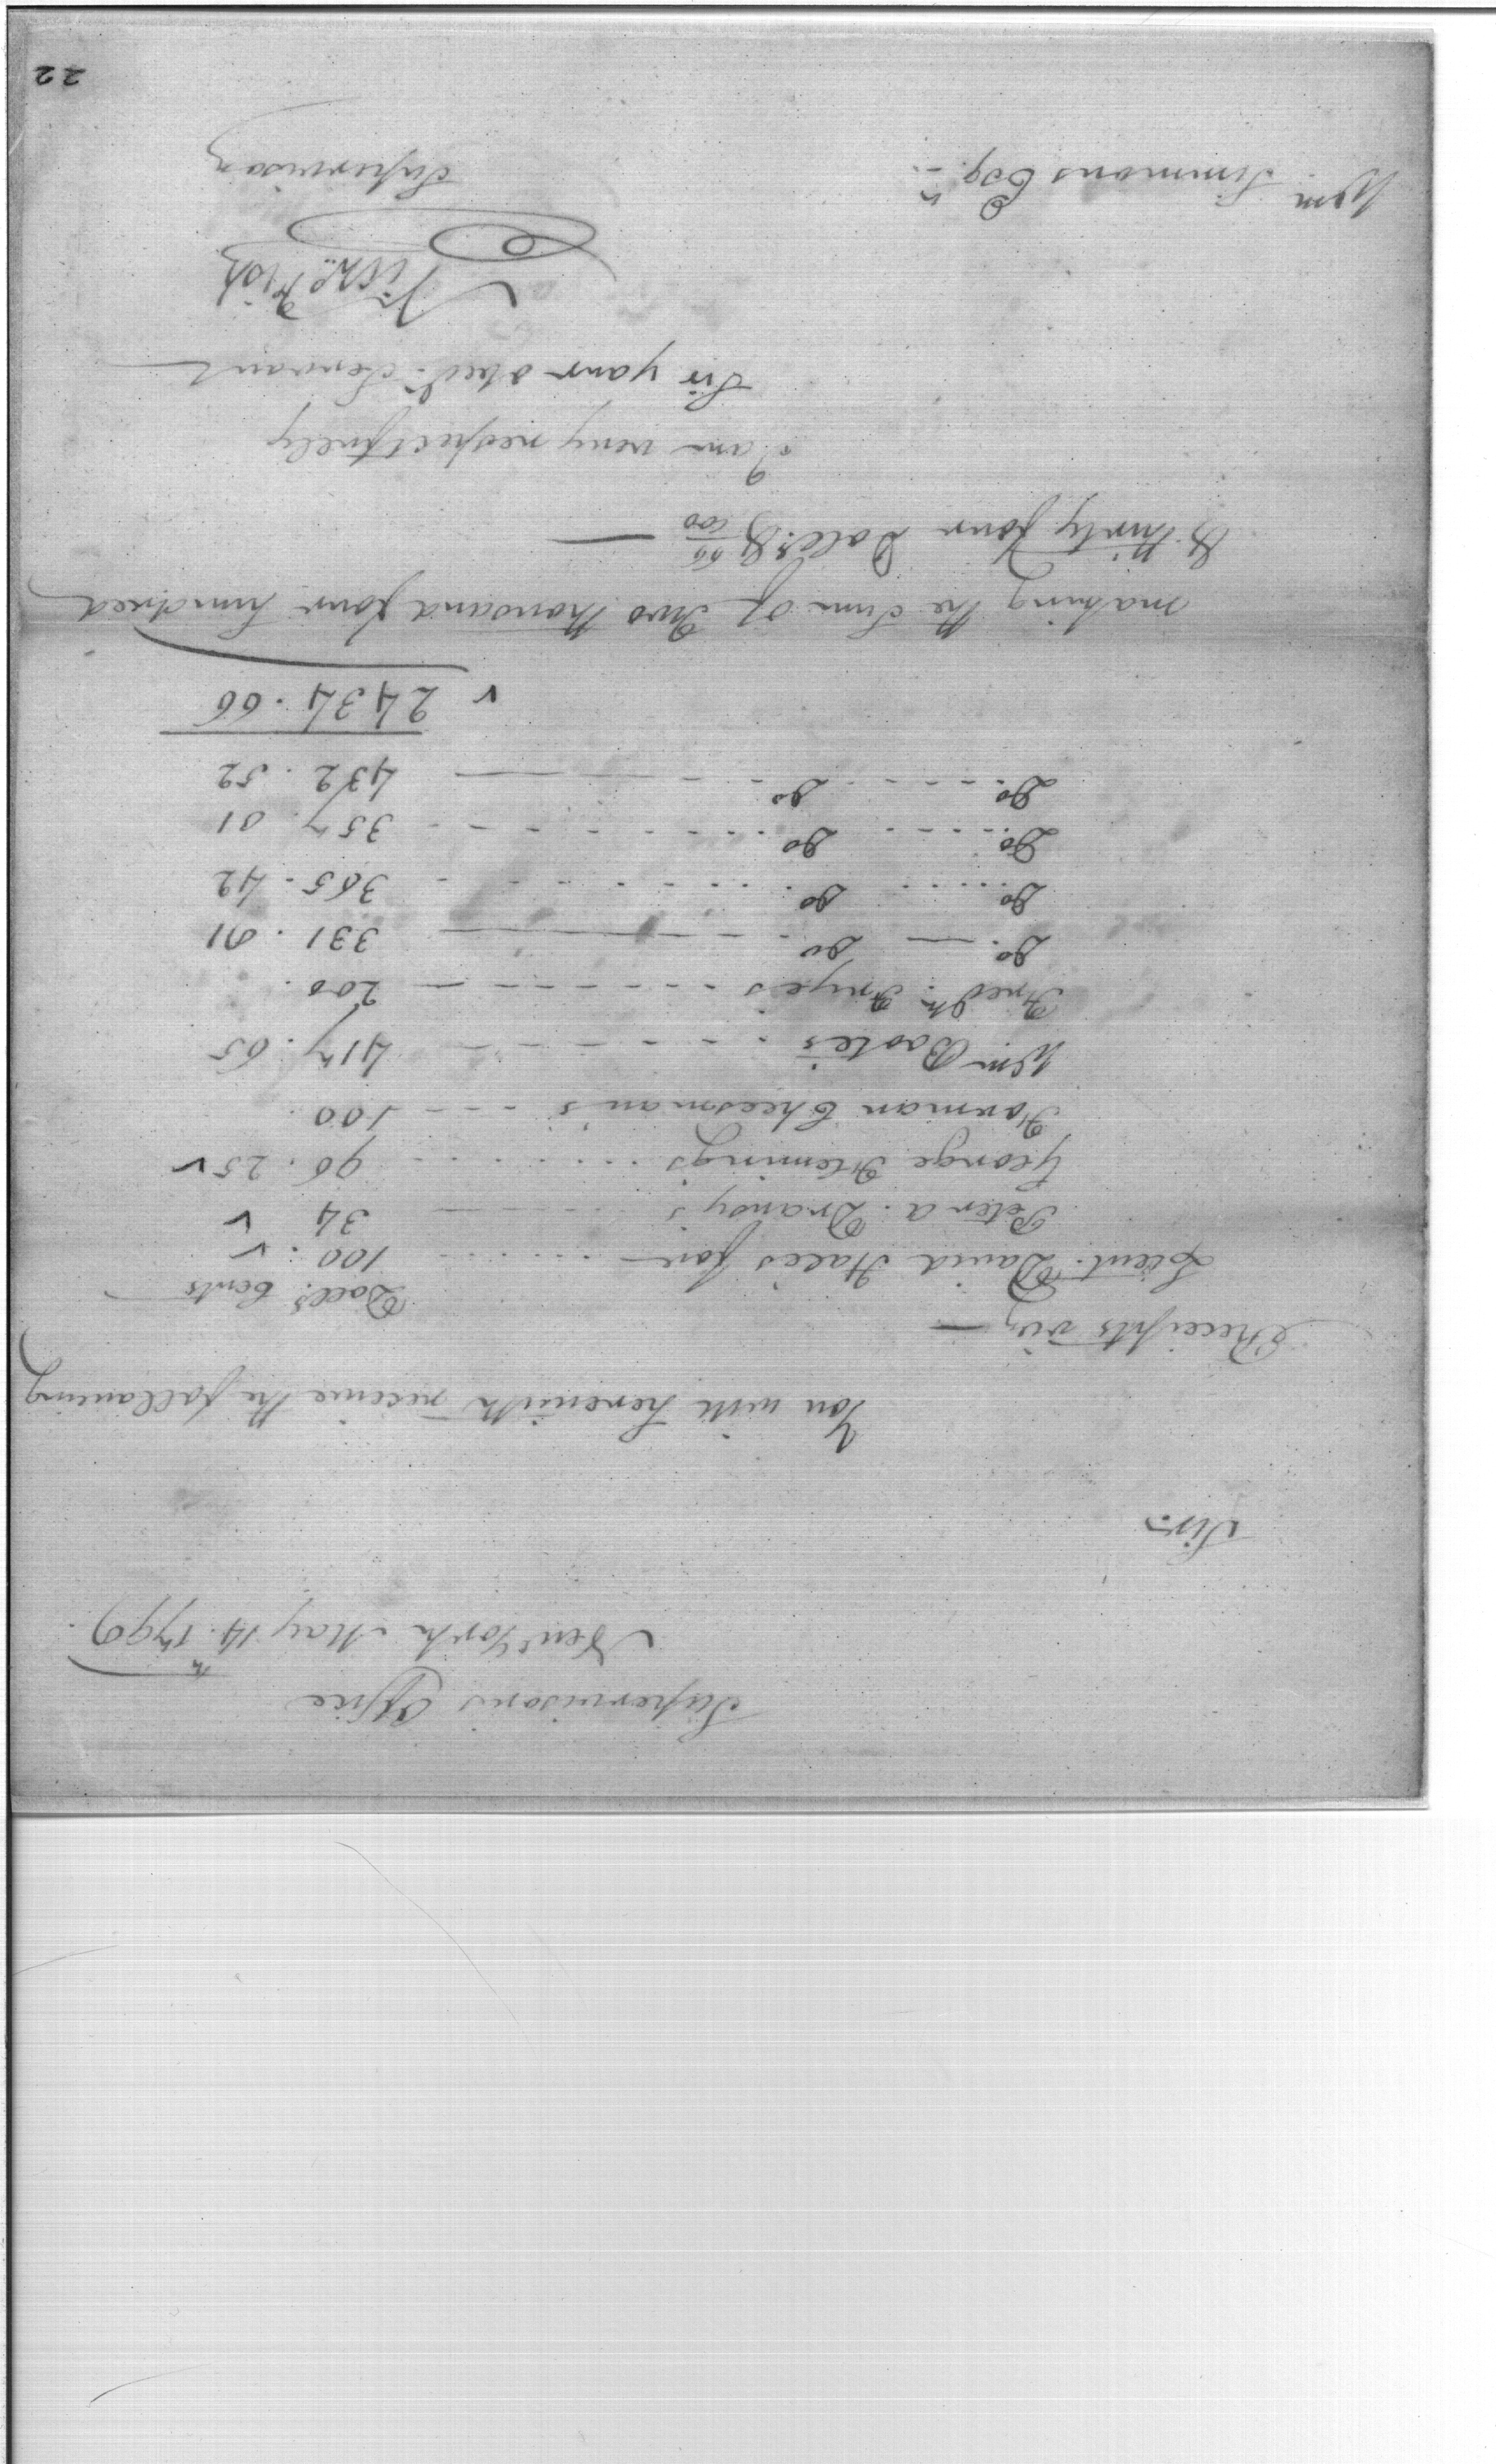 Supervisors Office
New York May 14th 1799.
Sir
You will herewith receive the following
Receipts viz
Dolls. Cents
Lieut. David Hales for 100.
Peter A. Dransy's 34
George Flemings 96.25
Forman Cheesman's 100
Wm Bootes 417.65
Fredk. Fryes 200.
Do Do 331.81
Do Do 365.42
Do Do 357.01
Do Do 432.52
2434.66
making the Sum of Two thousand four hundred
& thirty four Dolls. & 66/100
I am very respectfully
Sir your obed. Servant
Nichs. Fish
Supervisor
Wm Simmons Esqr.
22